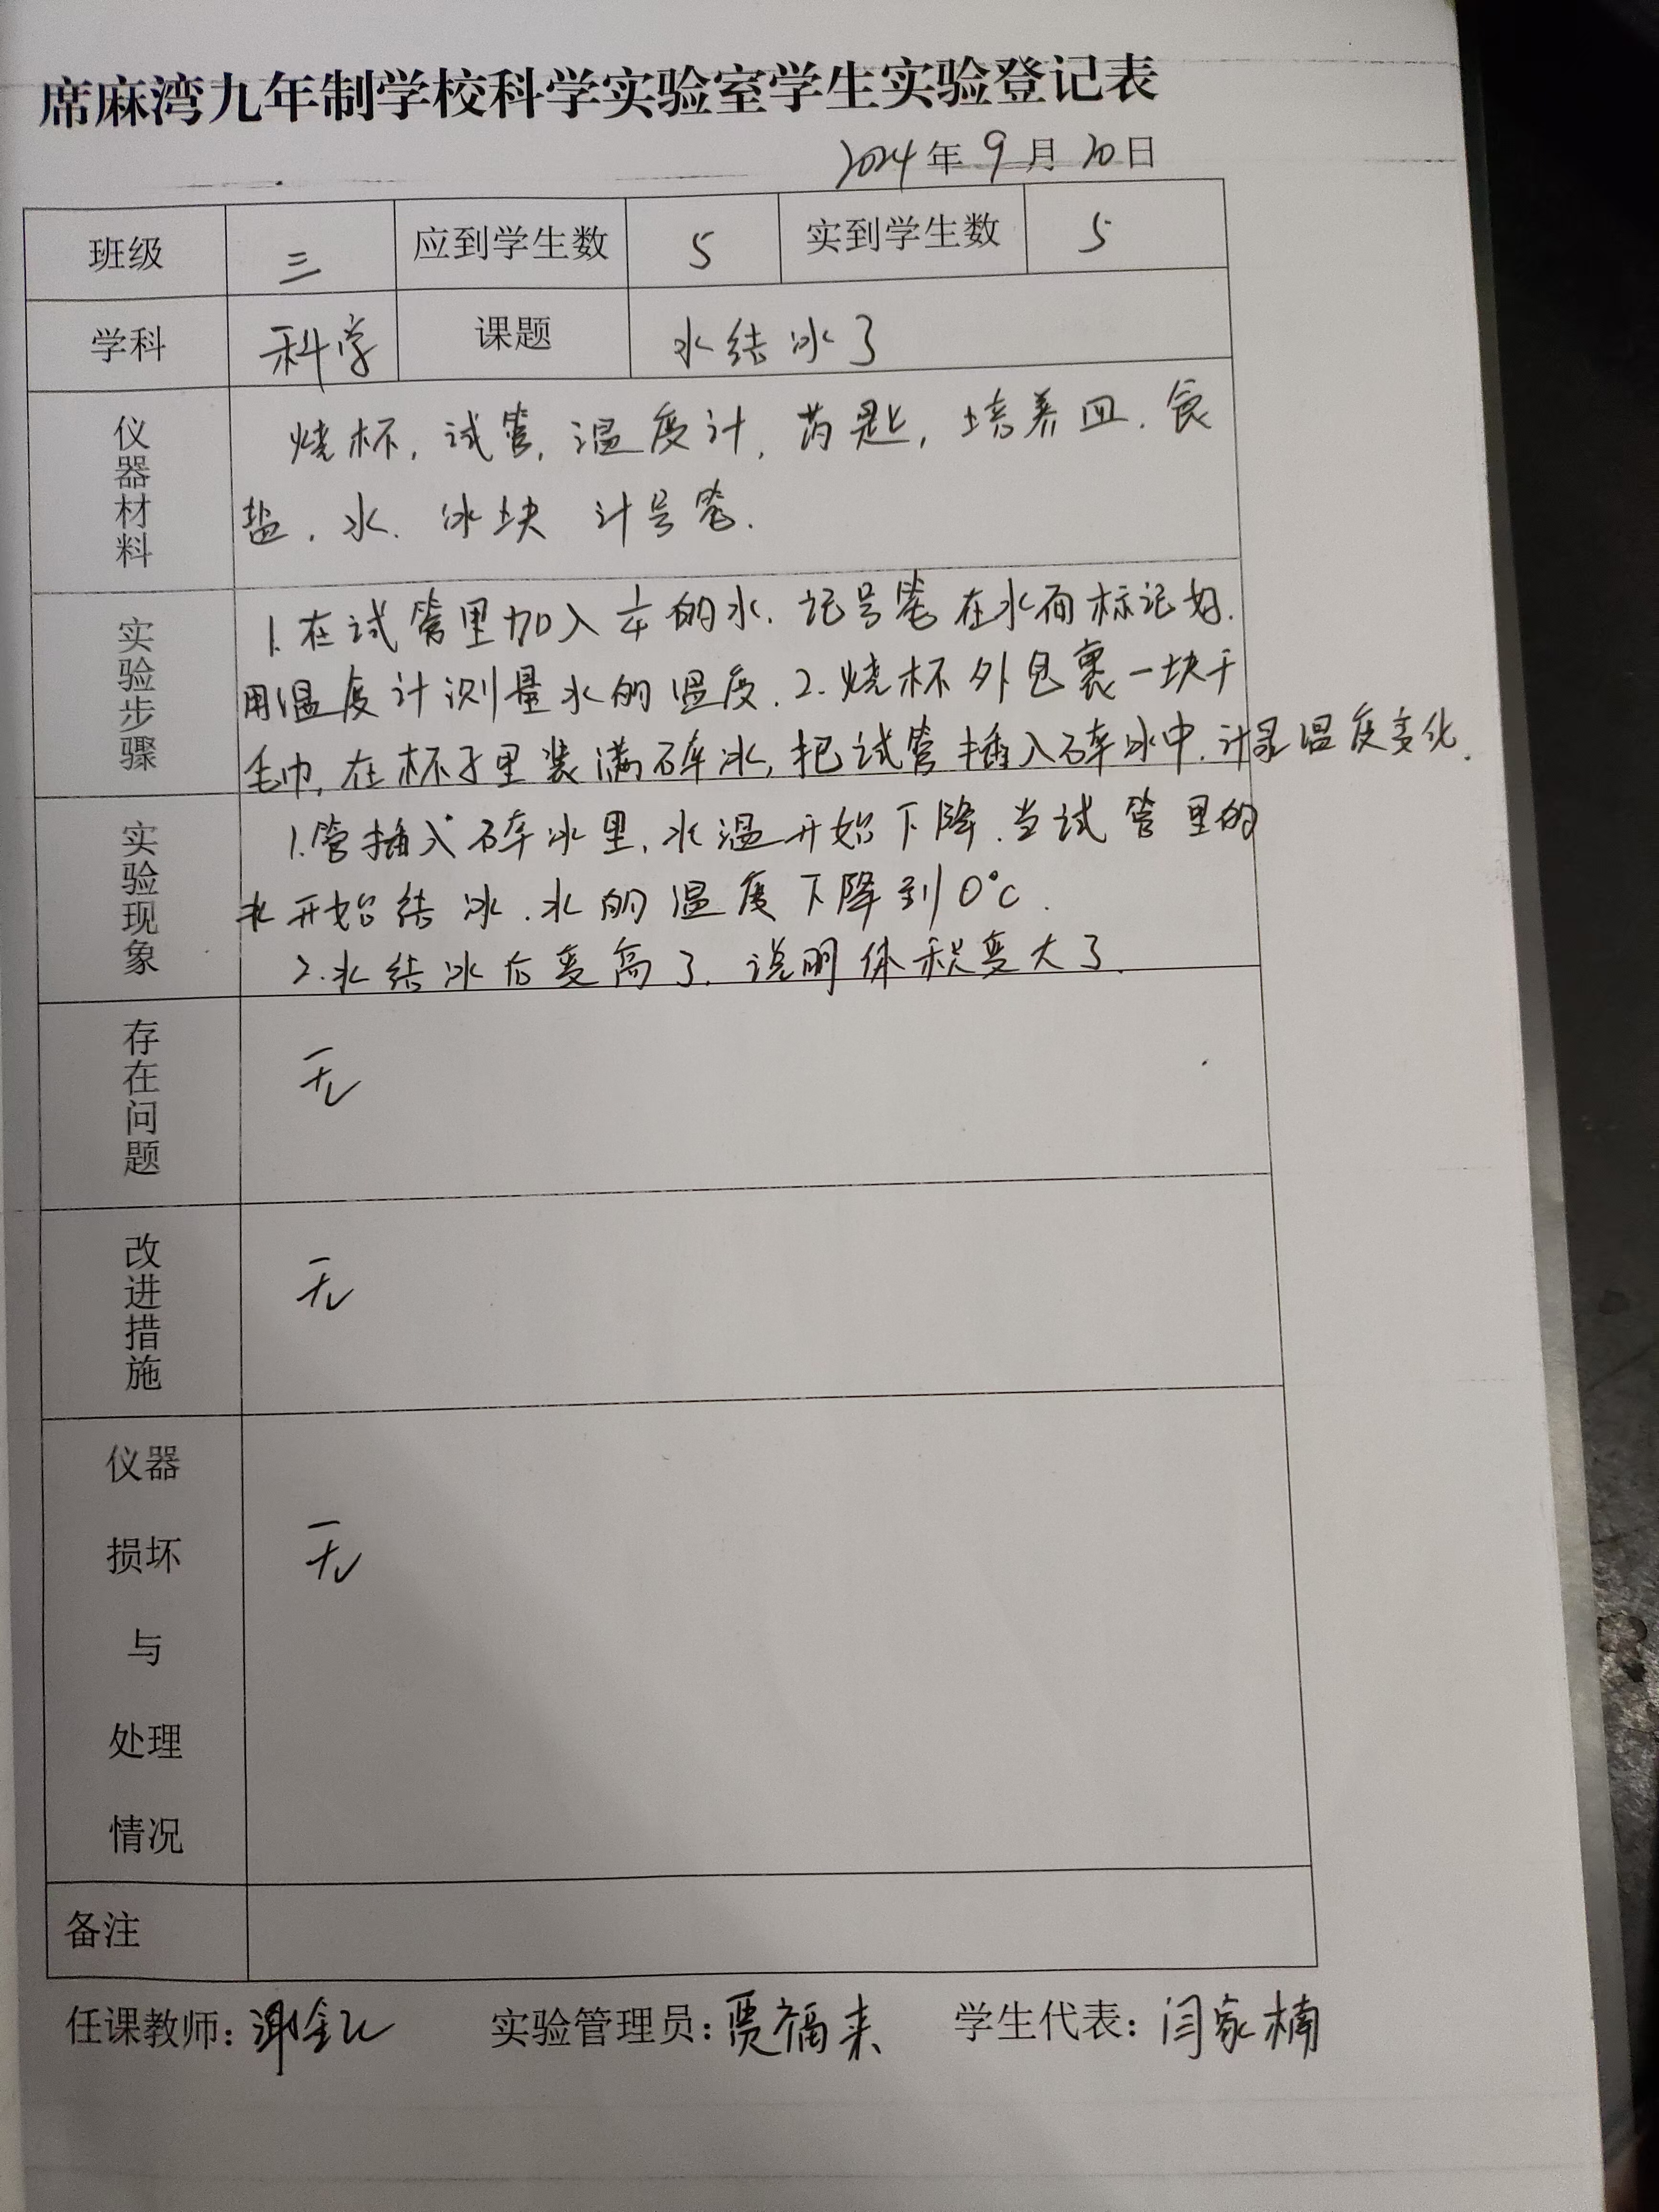 席麻湾九年制学校科学实验室学生实验登记表
2024年9月20日
班级 三 应到学生数 5 实到学生数 5
学科 科学 课题 水结冰了
仪器材料 烧杯,试管,温度计,药匙,培养皿.食
盐.水.冰块 计号笔.
实验步骤 1.在试管里加入 的水.记号笔在水面标记好.
用温度计测量水的温度.2.烧杯外包裹一块干
毛巾,在杯子里装满碎冰,把试管插入碎冰中.计录温度变化.
实验现象 1.管插入碎冰里,水温开始下降.当试管里的
水开始结冰.水的温度下降到0°C.
2.水结冰后变高了.说明体积变大了.
存在问题 无
改进措施 无
仪器
损坏 无
与
处理
情况
备注
任课教师: 实验管理员:贾福来 学生代表:闫家楠